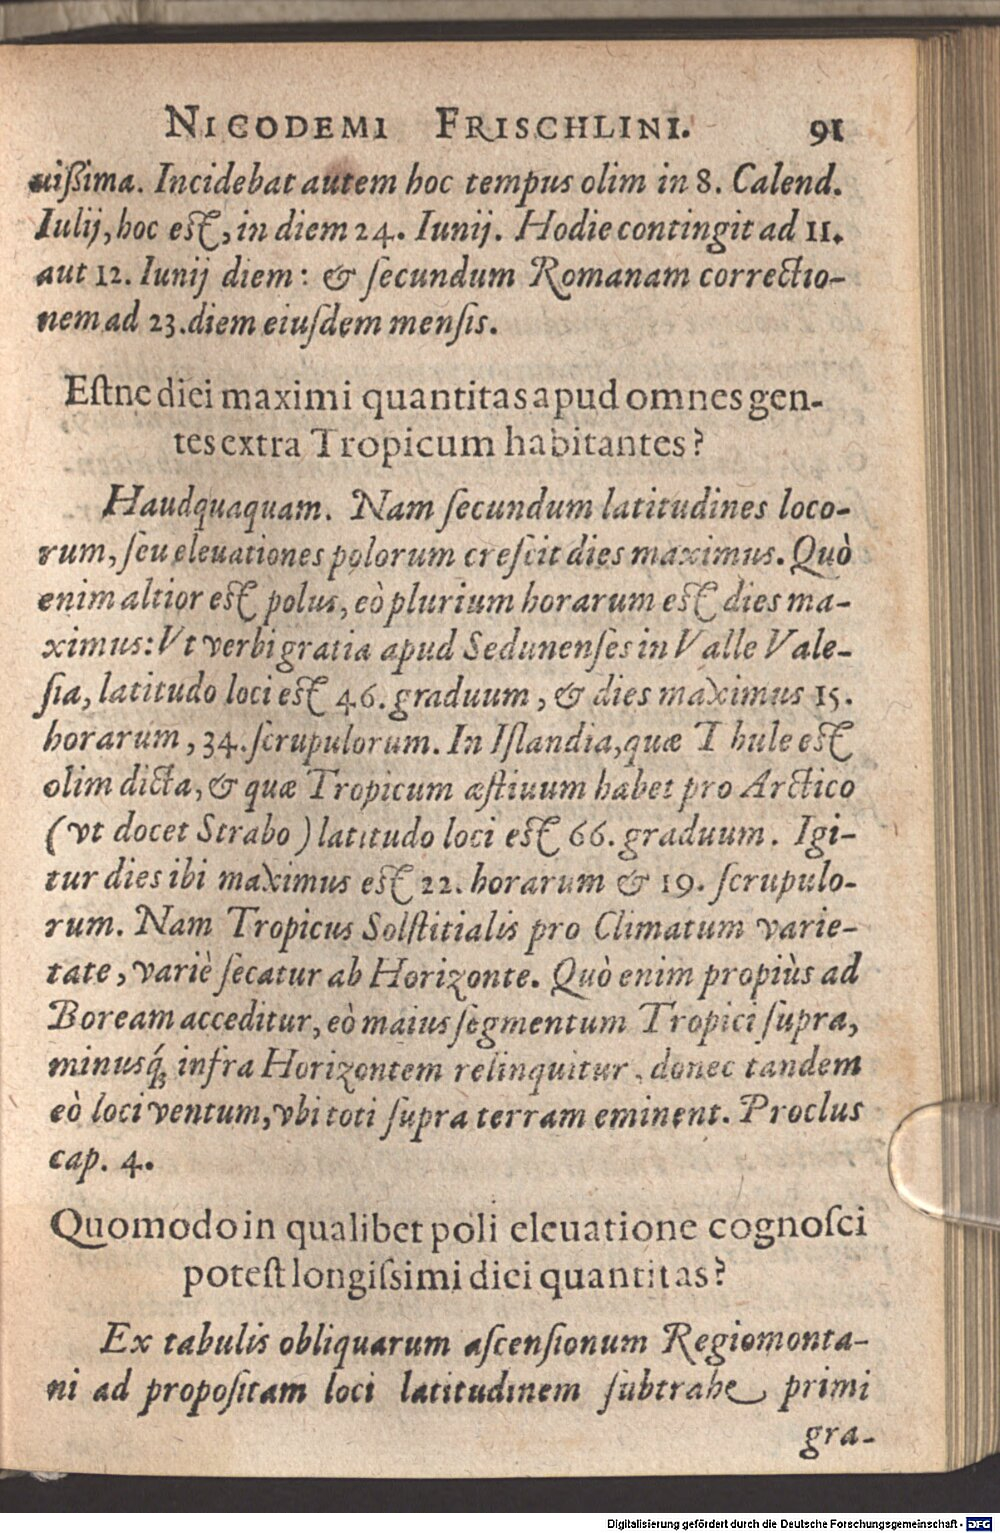 NICODEMI FRISCHLINI. 91
uiſſima. Incidebat autem hoc tempus olim in 8. Calend.
Iulij, hoc eſt, in diem 24. Iunij. Hodie contingit ad 11.
aut 12. Iunij diem: & ſecundum Romanam correctio-
nem ad 23. diem eiuſdem menſis.
Eſtne diei maximi quantitas apud omnes gen-
tes extra Tropicum habitantes?
Haudquaquam. Nam ſecundum latitudines loco-
rum, ſeu eleuationes polorum creſcit dies maximus. Quò
enim altior eſt polus, eò plurium horarum eſt dies ma-
ximus: Vt verbi gratia apud Sedunenſes in Valle Vale-
ſia, latitudo loci eſt 46. graduum, & dies maximus 15.
horarum, 34. ſcrupulorum. In Iſlandia, quæ Thule eſt
olim dicta, & quæ Tropicum æſtiuum habet pro Arctico
(vt docet Strabo) latitudo loci eſt 66. graduum. Igi-
tur dies ibi maximus eſt 22. horarum & 19. ſcrupulo-
rum. Nam Tropicus Solſtitialis pro Climatum varie-
tate, variè ſecatur ab Horizonte. Quò enim propiùs ad
Boream acceditur, eò maius ſegmentum Tropici ſupra,
minusq́; infra Horizontem relinquitur, donec tandem
eò loci ventum, vbi toti ſupra terram eminent. Proclus
cap. 4.
Quomodo in qualibet poli eleuatione cognoſci
poteſt longiſsimi diei quantitas?
Ex tabulis obliquarum aſcenſionum Regiomonta-
ni ad propoſitam loci latitudinem ſubtrahe primi
gra-
Digitalisierung gefördert durch die Deutsche Forschungsgemeinschaft - DFG